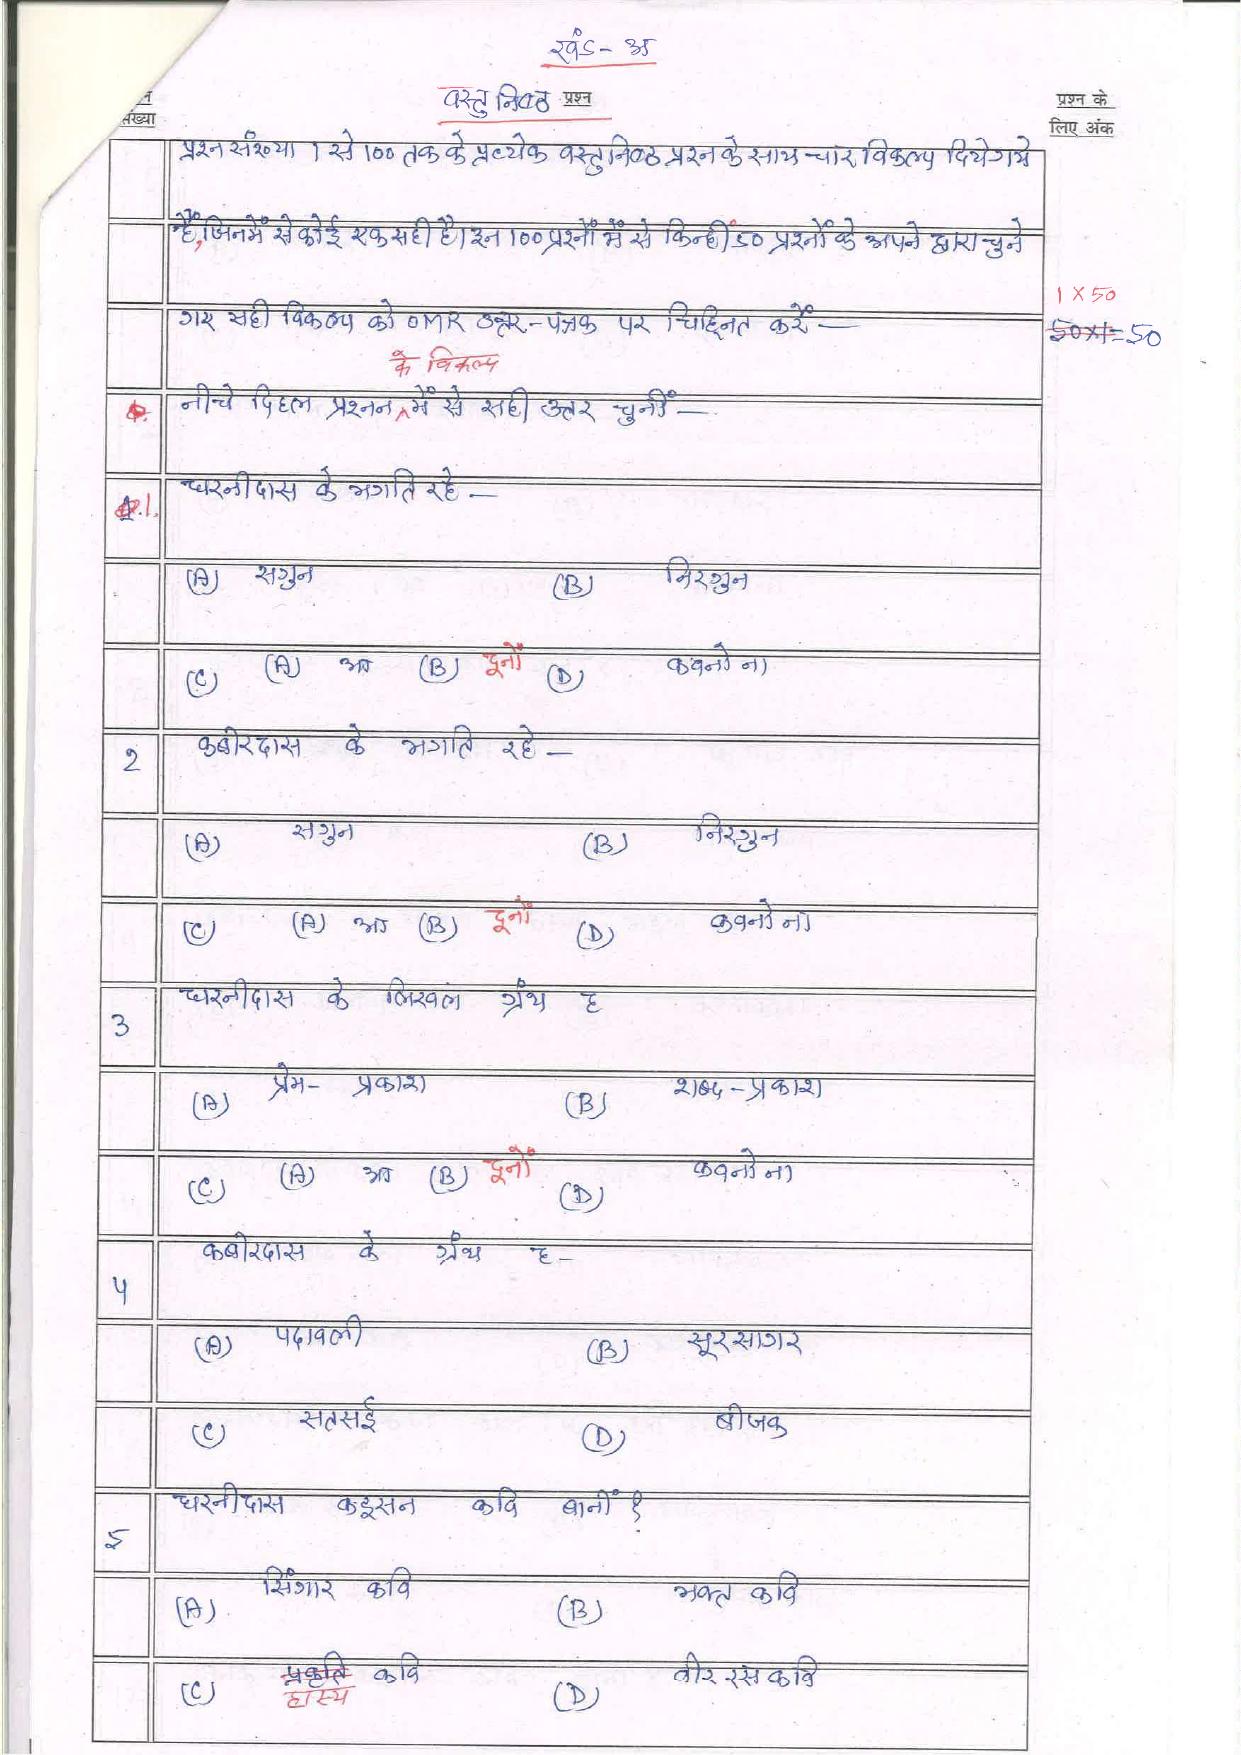 खंड - अ
वस्तुनिष्ठ प्रश्न
संख्या
प्रश्न के
लिए अंक
प्रश्न संख्या 1 से 100 तक के प्रत्येक वस्तुनिष्ठ प्रश्न के साथ चार विकल्प दिये गये
हैं, जिनमें से कोई एक सही है। इन 100 प्रश्नों में से किन्हीं 50 प्रश्नों के अपने द्वारा चुने
गए सही विकल्प को OMR उत्तर-पत्रक पर चिह्नित करें —
1 X 50
50x1=50
के विकल्प
नीचे दिहल प्रश्नन में से सही उत्तर चुनीं —
1. धरनीदास के भगति रहे —
(A) सगुन (B) निरगुन
(C) (A) आ (B) दूनों (D) कवनो ना
2 कबीरदास के भगति रहे —
(A) सगुन (B) निरगुन
(C) (A) आ (B) दूनों (D) कवनो ना
3 धरनीदास के लिखल ग्रंथ ह
(A) प्रेम - प्रकाश (B) शब्द - प्रकाश
(C) (A) आ (B) दूनों (D) कवनो ना
4 कबीरदास के ग्रंथ ह -
(A) पदावली (B) सूरसागर
(C) सतसई (D) बीजक
5 धरनीदास कइसन कवि बानीं ?
(A) सिंगार कवि (B) भक्त कवि
(C) प्रकृति कवि (D) वीर रस कवि
हास्य